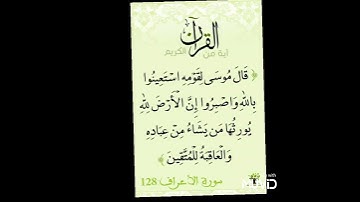 القرآن
آية من الكريم
﴿ قَالَ مُوسَى لِقَوْمِهِ اسْتَعِينُوا
بِاللَّهِ وَاصْبِرُوا إِنَّ الْأَرْضَ لِلَّهِ
يُورِثُهَا مَن يَشَاءُ مِنْ عِبَادِهِ
وَالْعَاقِبَةُ لِلْمُتَّقِينَ ﴾
سورة الأعراف 128